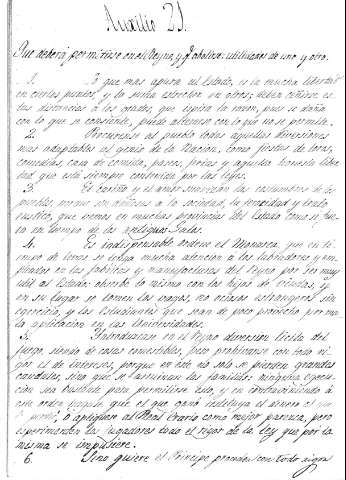 Auxilio 21.
Que deberá permitirse en el Reyno, y
utilidades de uno y otro.
1. Lo que mas apura al Estado, es la mucha libertad
en ciertos puntos, y la suma estrechez en otros;
las distancias á los grados, que
con lo que se consiente, puede con lo que no se permita.
2. Procurense al pueblo todas aquellas diversiones
mas adaptables al genio de la Nacion, como fiestas de toros,
comedias, casa de comida, paseos, ferias y aquella honesta liber-
tad que está siempre por las leyes.
3. El cariño y el amor suavizan las costumbres de los
pueblos, á la sociedad, la ferocidad y trato
rustico, que vemos en muchas provincias del Estado como si fue-
ra en tiempo de los antiguos Galos.
4. Es indispensable ordene el Monarca que en ti-
empo de se tenga mucha atencion á los labradores y em-
pleados en las fabricas y manufacturas del Reyno por ser muy
util al Estado: obsérvese lo mismo con los hijos de viudas, y
en su lugar se tomen los vagos, los ociosos estrangeros sin
egercicio, y los Estudiantes que sean de poco provecho por ma-
la aplicacion en las Universidades.
5. Introduzcase en el Reyno diversion licita del
juego, siendo de cosas comestibles, pero prohivanse con todo ri-
gor el de intereses, porque en este no solo se pierden grandes
caudales sino que se arruinan las familias: ninguna
sea bastante para permitirse esto, y en
á este orden que el que ganó restituya el dinero al que
perdió, ó apliquen al Real Erario como mejor parezca, pero
experimenten los jugadores todo el rigor de la ley que por la
misma se impusiere.
6. quiere el Principe con todo rigor